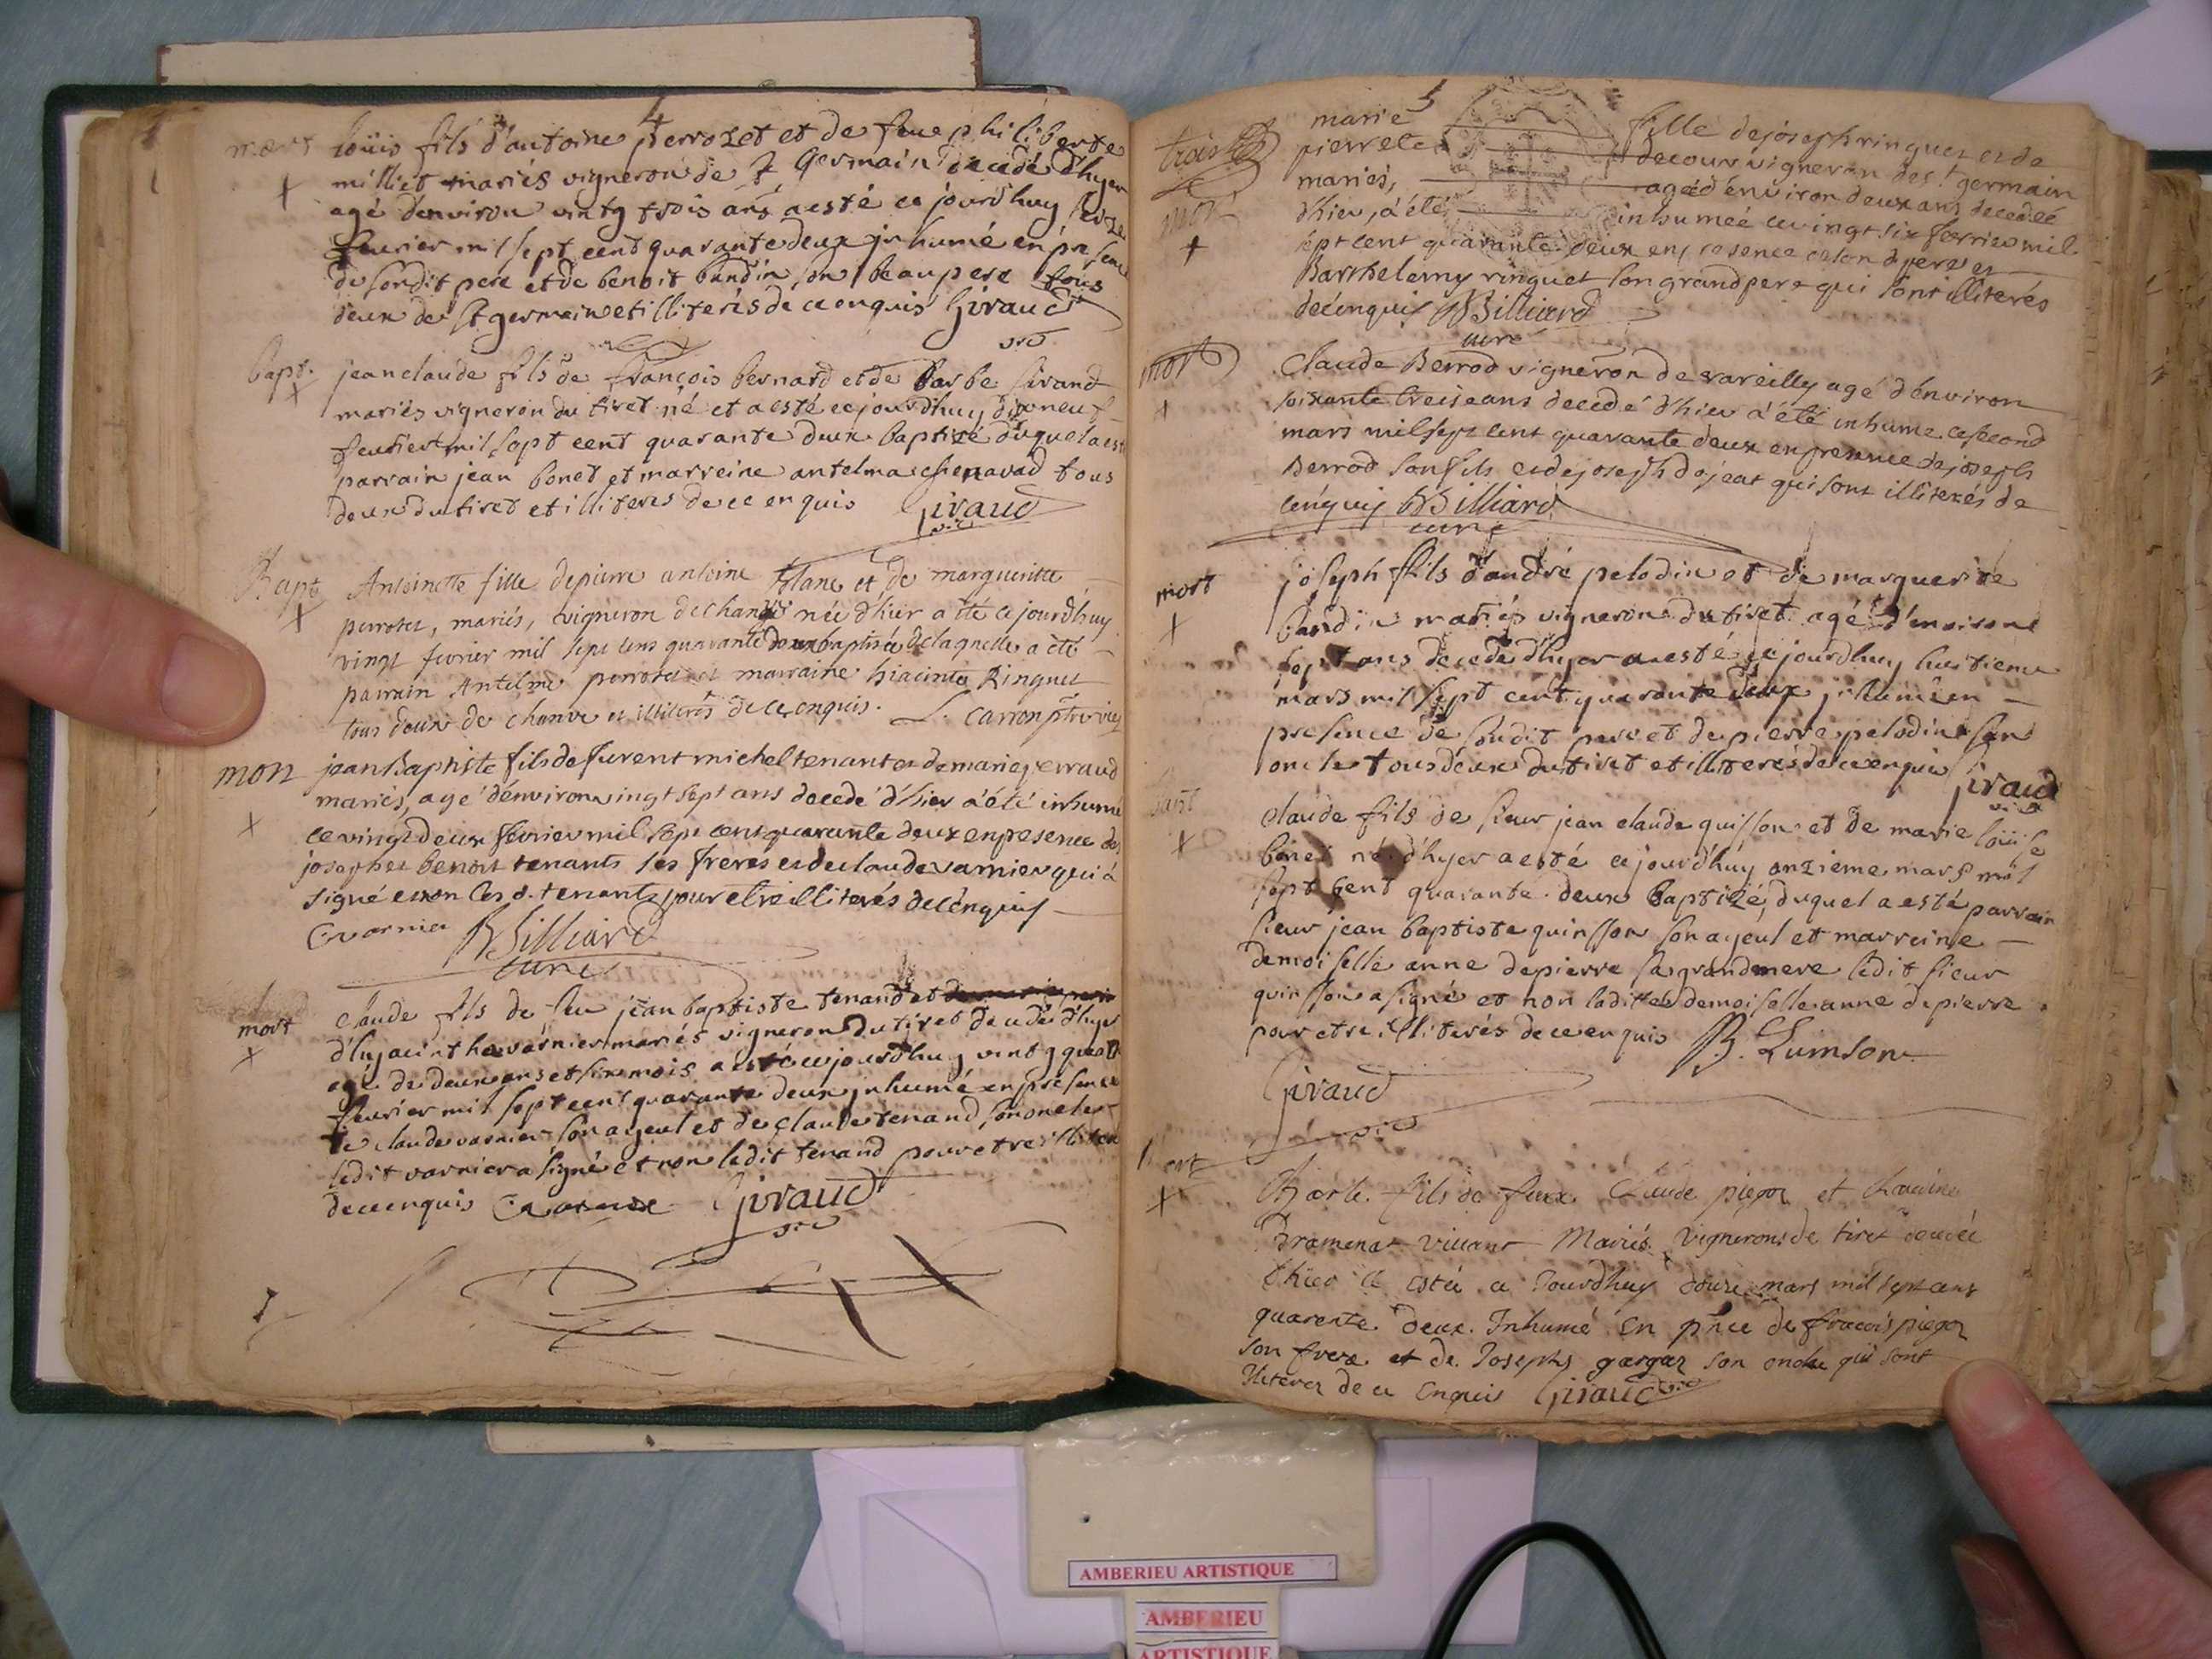 4
mort louis fils d'antoine perrozet et de feue philiberte
milliet mariés vigneron de St Germain decedé d'hyer
agé d'environ vintg trois ans a esté ce jourd'huy seize
feurier mil sept cent quarante deux jnhumé en presence
de sondit pere et de benoit bandin son beaupere tous
deux de st germain et illiterés de ce enquis Giraud
vic
bapt. jean claude fils de françois bernard et de barbe sirand
mariés vigneron du tiret né et a esté ce jourd'huy dixneuf
feurier mil sept cent quarante deux baptizé duquel a esté
parrain jean bonet et marreine antelma chenavad tous
deux du tiret et illiteres de ce enquis Giraud
vic
Bapt Antoinette fille de pierre antoine et de marguerite
perrozet, mariés, vigneron de née d'hier a été ce jourd'huy
vingt fevrier mil sept cens quarante deux baptisée de laquelle a été
parrain Antelme perrozet et marraine hiacinte Ringuet
tous deux de chanve et illiterés de ce enquis. L. Carron ptre vic
mort jean Baptiste fils de furent michel tenant et de marie perraud
mariés, agé d'environ vingt sept ans decedé d'hier a été inhumé
ce vingt deux fevrier mil sept cent quarante deux en presence de
joseph et benoit tenants ses freres et de claude varnier qui a
signé et non les d. tenants pour etre illiterés de ce enquis
C varnier B Billiard
curé
mort claude fils de feu jean baptiste tenand et
d'hyacinthe varnier mariés vigneron du tiret decedé d'hyer
agé de deux ans et six mois a esté ce jourd'huy vintg quatre
feurier mil sept cent quarante deux jnhumé en presence
de claude varnier son ayeul et de claude tenand son oncle
ledit varnier a signé et non ledit tenand pour etre illiteré
de ce enquis C varnier Giraud
vic
5
marie fille de joseph ringuet et de
pierrete decour vigneron de st germain
mariés, agée d'environ deux ans decedée
mort d'hier, a été inhumée ce vingt six fevrier mil
sept cent quarante deux en presence de son d pere et
Barthelemy ringuet son grand pere qui sont illiterés
de ce enquis B Billiard
curé
mort Claude Berrod vigneron de vareilly agé d'environ
soixante treise ans decedé d'hier a été inhumé ce second
mars mil sept cent quarante deux en presence de joseph
Berrod son fils et de joseph dojeat qui sont illiterés de
ce enquis B Billiard
curé
mort joseph fils d'andré pelodin et de marguerite
bandin mariés vigneron du tiret agé d'environ
sept ans decedé d'hyer a esté ce jourd'huy huitieme
mars mil sept cent quarante deux jnhumé en
presence de sondit pere et de pierre pelodin son
oncle tous deux du tiret et illiterés de ce enquis Giraud
vic
bapt claude fils de sieur jean claude quisson et de marie louise
bonet né d'hyer a esté ce jourd'huy onzieme mars mil
sept cent quarante deux baptizé, duquel a esté parrain
sieur jean baptiste quinsson son ayeul et marreine
demoiselle anne depierre sa grandmere ledit sieur
quinsson a signé et non laditte demoiselle anne depierre
pour etre illiterés de ce enquis B. Quinson
Giraud
vic
mort fils de feux Claude et
Bramenat vivant Mariés vignerons de tiret decedé
d'hier a esté a Jourdhuy douze mars mil sept cens
quarente deux. Inhumé En pnce de francois
son frere et de Josephs son oncle qui sont
Iliterez de ce Enquis Giraud vic
AMBERIEU ARTISTIQUE
AMBERIEU
ARTISTIQUE